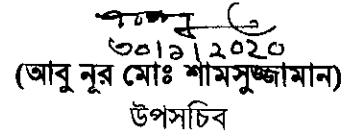 ৩০/৯/২০২০
(আবু নূর মোঃ শামসুজ্জামান)
উপসচিব